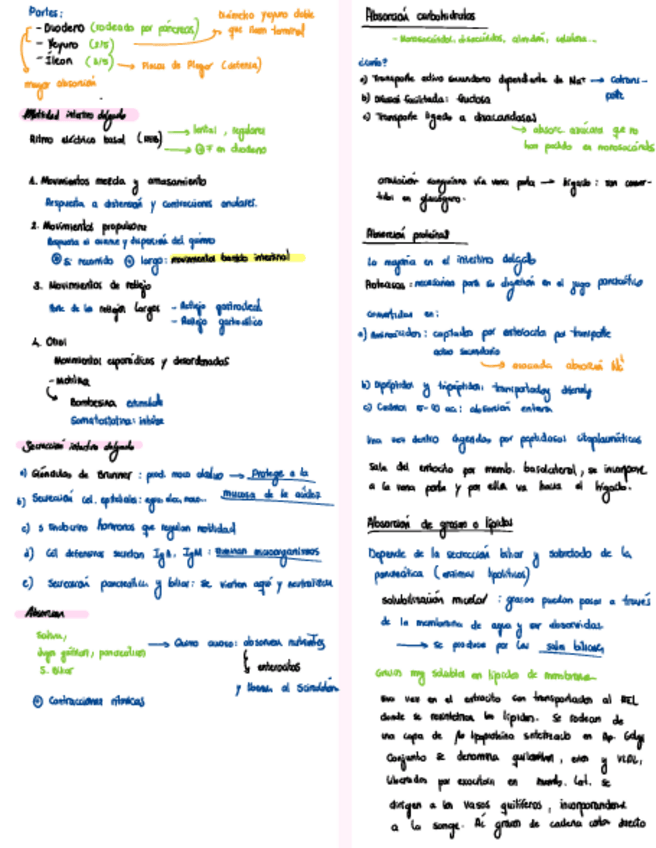 Partes:
- Duodeno (rodeado por páncreas)
- Yeyuno (2/5)
- Íleon (3/5) → Placas de Peyer (defensa)
Diámetro yeyuno doble
que íleon terminal
mayor absorción
Motilidad intestino delgado
Ritmo eléctrico basal (REB) → lentas, regulares
→ ⊕ F en duodeno
1. Movimientos mezcla y amasamiento
Respuesta a distensión y contracciones anulares.
2. Movimientos propulsivos
Respuesta al avance y disposición del quimo
Si recorrido ⊕ largo: movimiento barrido intestinal
3. Movimientos de reflejo
Parte de los reflejos largos - Reflejo
- Reflejo
4. Otros
Movimientos esporádicos y desordenados
- Motilina
Bombesina estimula
Somatostatina: inhibe
Secreción intestino delgado
a) Glándulas de Brunner: prod. moco alcalino → Protege a la
mucosa de la acidez
b) Secreción cel. epiteliales: agua, elec, moco...
c) S. Endocrino hormonas que regulan motilidad
d) Cél defensivas secretan IgA, IgM: Eliminan macroorganismos
e) Secreción pancreática y biliar: se vierten aquí y neutralizan
Absorción
Saliva,
Jugo gástrico, pancreático
S. Biliar
→ Quimo acuoso: absorben nutrientes
enterocitos
y liberan al
⊕ Contracciones rítmicas
Absorción carbohidratos
- Monosacáridos, disacáridos, almidón, celulosa...
¿Cómo?
a) Transporte activo secundario dependiente de Na+ → Cotrans-
porte
b) Difusión facilitada: fructosa
c) Transporte ligado a disacaridasas
→ absorc. azúcares que no
han podido en monosacáridos
circulación sanguínea vía vena porta → hígado: son conver-
tidos en glucógeno.
Absorción proteínas
La mayoría en el intestino delgado
Proteasas: necesarias para su digestión en el jugo pancreático
convertidas en:
a) Aminoácidos: captados por enterocito por transporte
activo secundario
→ asociada absorción Na+
b) Dipéptidos y tripéptidos: transportados
c) Cadenas 5-10 aa.: absorción entera
Una vez dentro digeridos por peptidasas citoplasmáticas
Sale del enterocito por memb. basolateral, se incorpora
a la vena porta y por ella va hacia el hígado.
Absorción de grasas o lípidos
Depende de la secreción biliar y sobretodo de la
pancreática (enzimas lipolíticos)
solubilización micelar: grasas puedan pasar a través
de la membrana de agua y ser absorvidas.
→ se produce por las sales biliares
Grasas muy solubles en lípidos de membrana
Una vez en el enterocito son transportadas al REL
donde se resintetizan los lípidos. Se rodean de
una capa de β lipoproteína sintetizada en Ap. Golgi
Conjunto se denomina quilomicrón, estos y VLDL,
liberados por exocitosis en memb. Lat. se
dirigen a los vasos quilíferos, incorporándose
a la sangre. Ác grasos de cadena corta directo